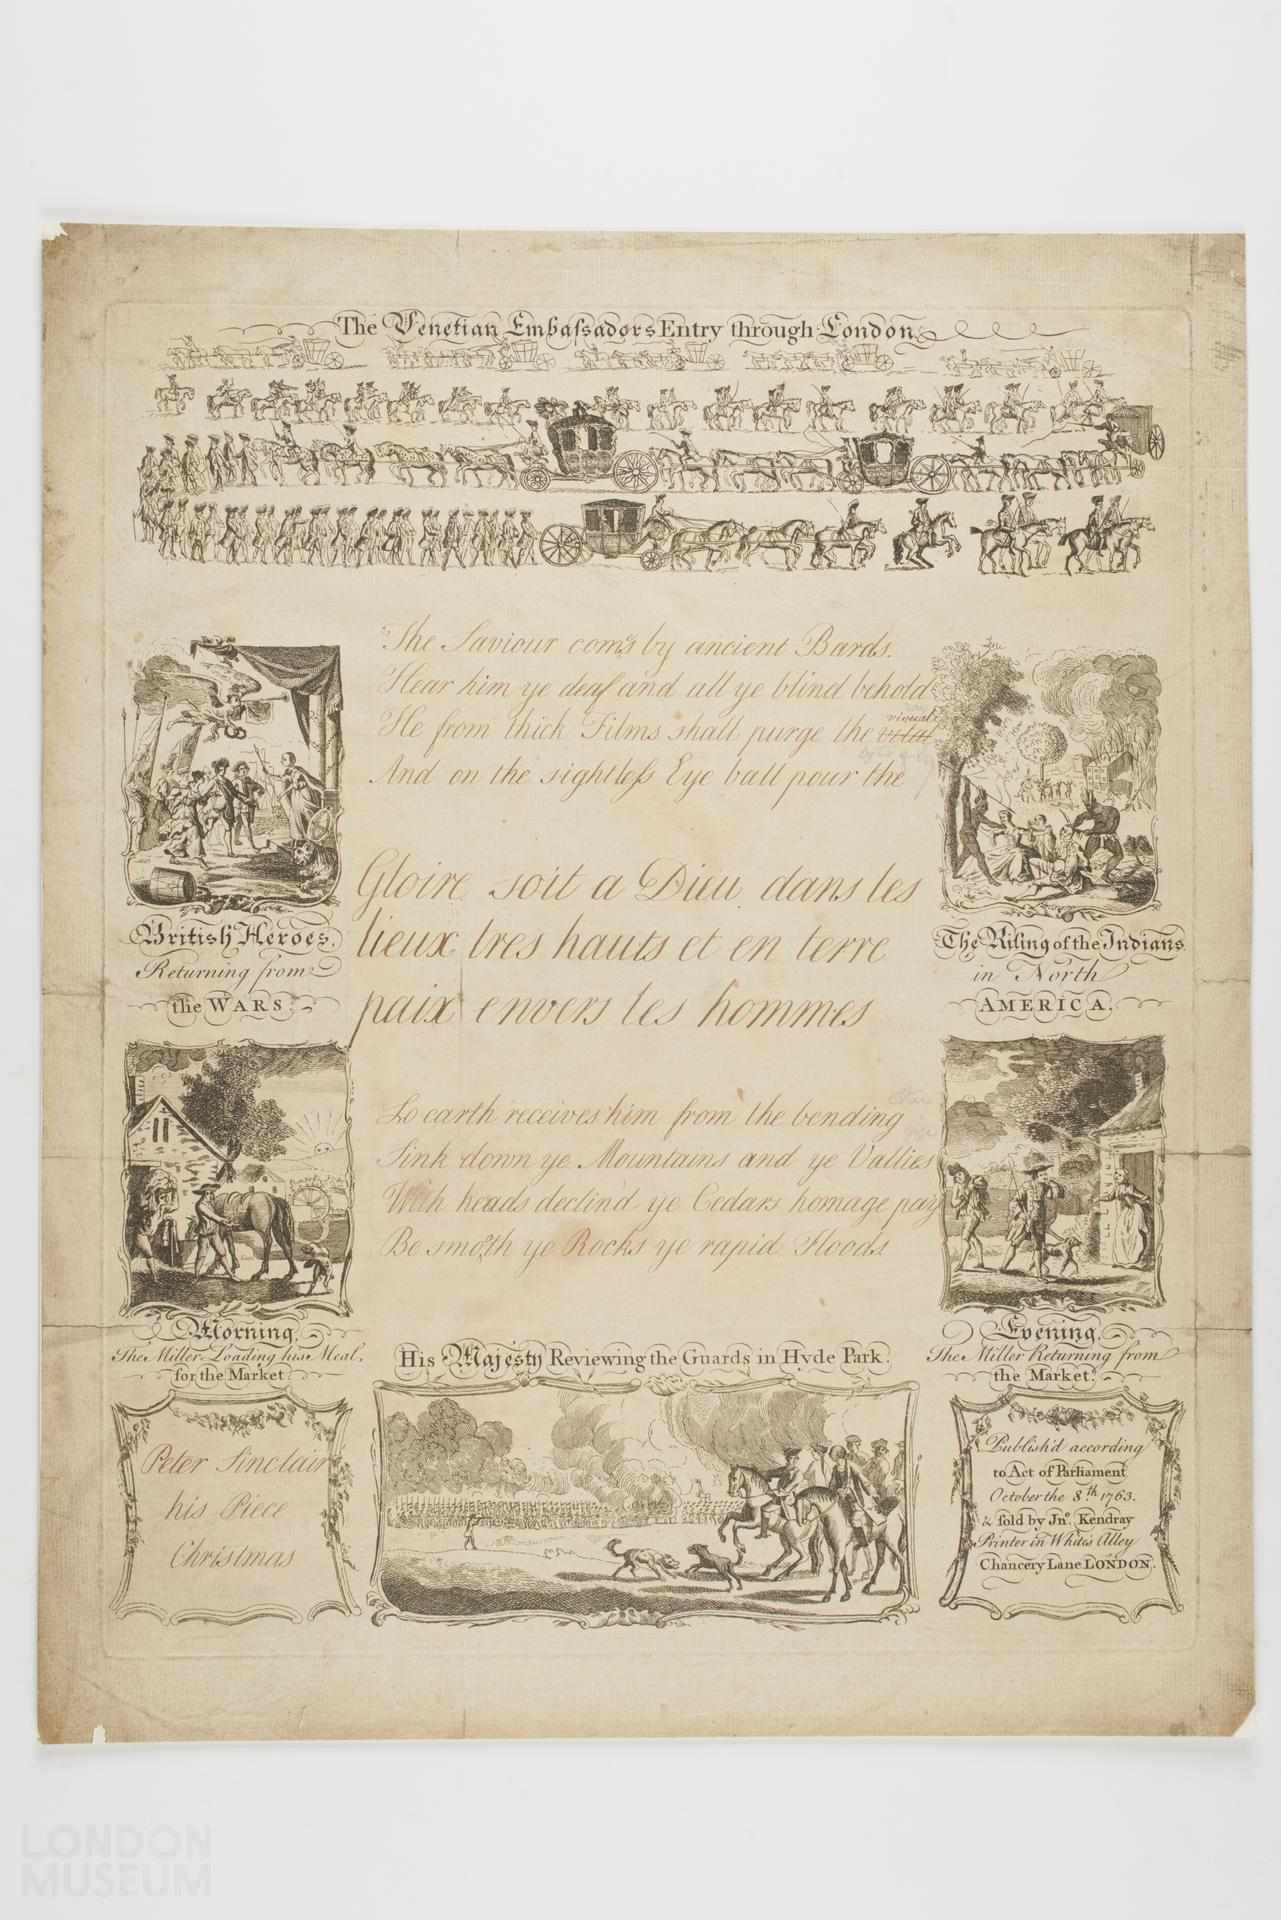 The Venetian Embassadors Entry through London
The Saviour coms by ancient Bards.
Hear him ye deaf and all ye blind behold
He from thick Films shall purge the visual
And on the sightless Eye ball pour the
Gloire soit a Dieu dans les
lieux tres hauts et en terre
paix envers les hommes
British Heroes,
Returning from
the WARS.
The Riling of the Indians
in North
AMERICA.
Lo earth receives him from the bending
Sink down ye Mountains and ye Vallies
With heads declin'd ye Cedars homage pay
Be smoth ye Rocks ye rapid Floods
Morning,
The Miller Loading his Meal,
for the Market
Evening,
The Miller Returning from
the Market.
His Majesty Reviewing the Guards in Hyde Park.
Peter Sinclair
his Piece
Christmas
Publish'd according
to Act of Parliament
October the 8th 1763.
& sold by Jno. Kendray
Printer in Whites Alley
Chancery Lane LONDON.
LONDON
MUSEUM